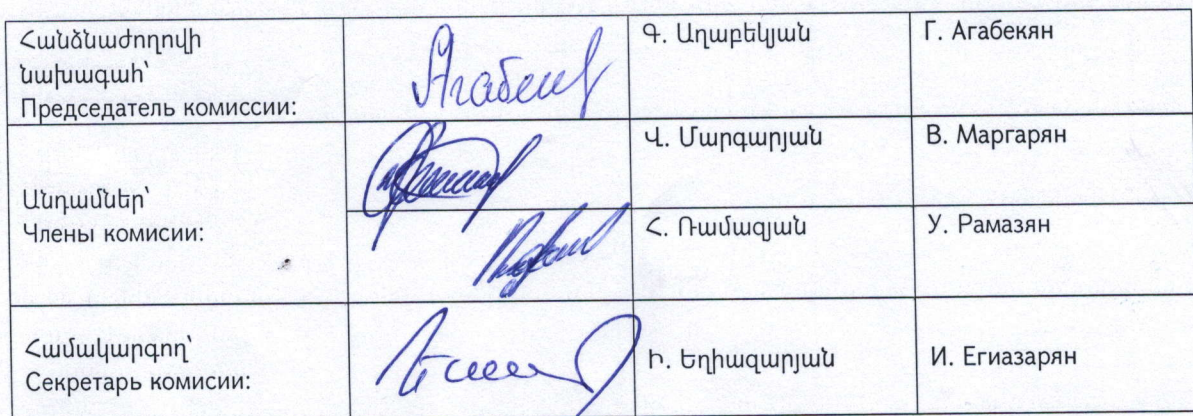 Հանձնաժողովի
նախագահ՝
Председатель комиссии:
Գ. Աղաբեկյան
Г. Агабекян
Անդամներ՝
Члены комисии:
Վ. Մարգարյան
В. Маргарян
Հ. Ռամազյան
У. Рамазян
Համակարգող՝
Секретарь комисии:
Ի. Եղիազարյան
И. Егиазарян